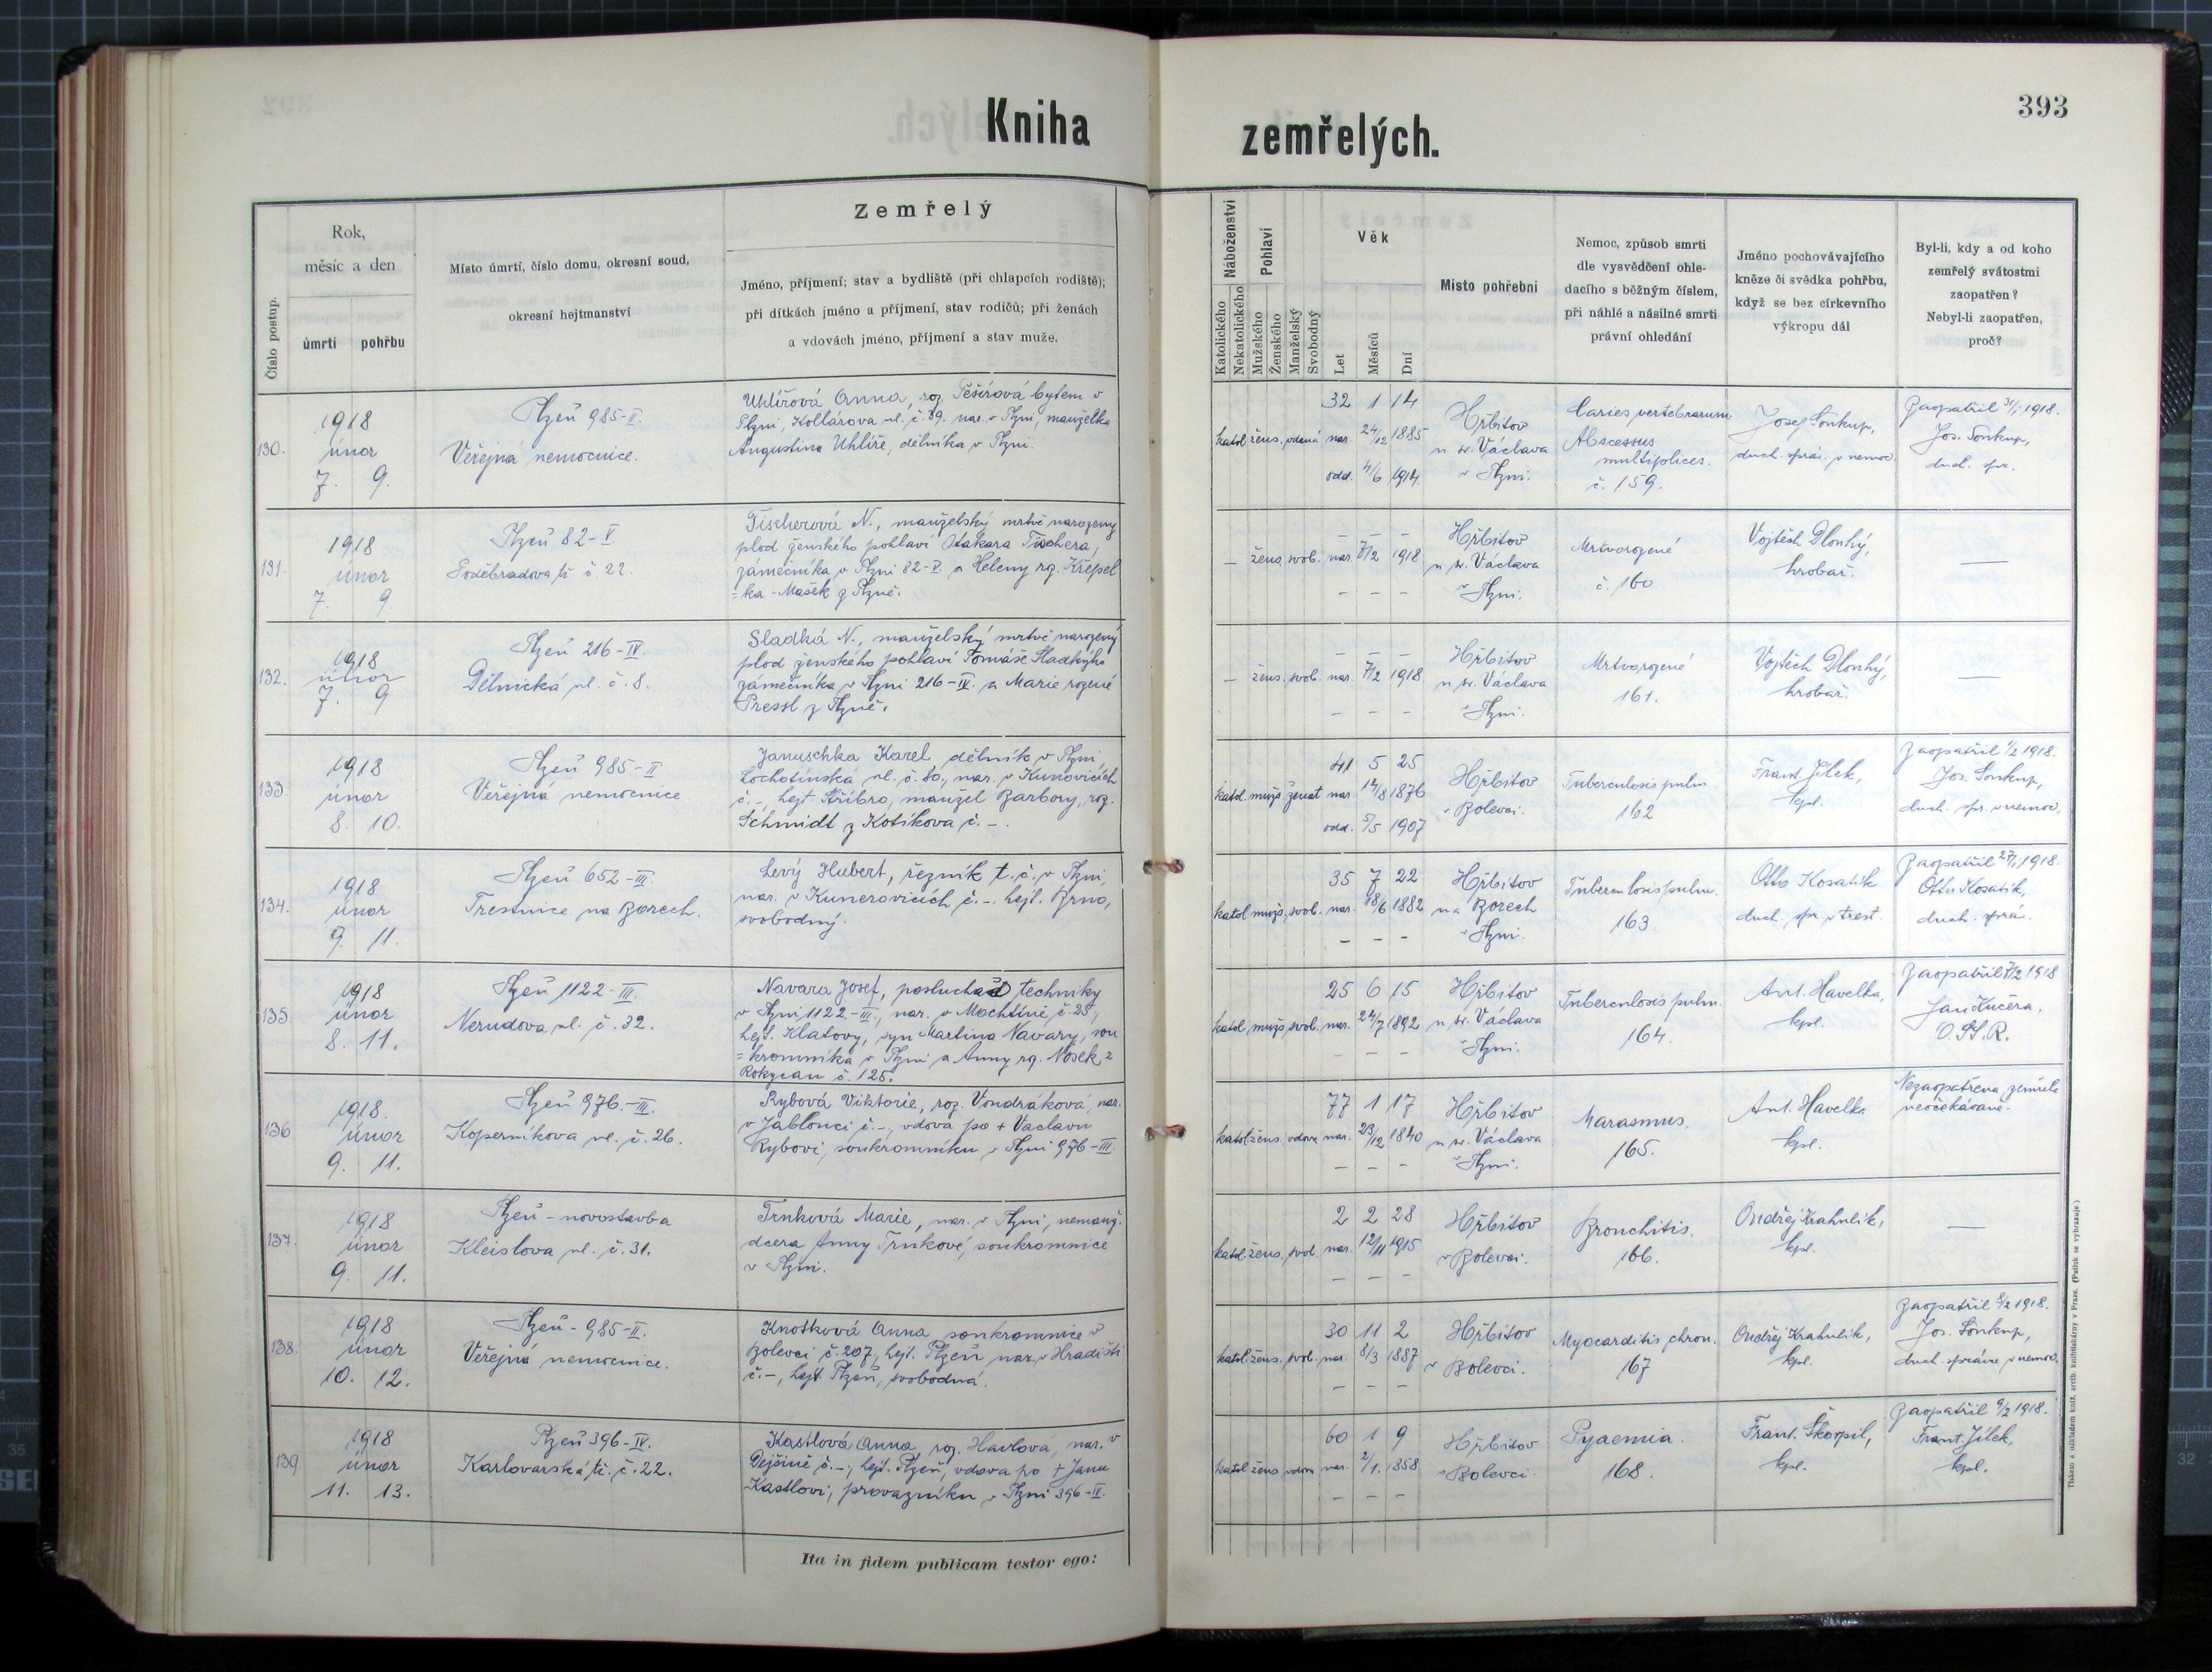 393
Kniha zemřelých.
Číslo postup.
Rok,
měsíc a den
úmrtí
pohřbu
Místo úmrtí, číslo domu, okresní soud,
okresní hejtmanství
Zemřelý
Jméno, příjmení; stav a bydliště (při chlapcích rodiště);
při dítkách jméno a příjmení, stav rodičů; při ženách
a vdovách jméno, příjmení a stav muže.
Náboženství
Katolického
Nekatolického
Pohlaví
Mužského
Ženského
Manželský
Svobodný
Věk
Let
Měsíců
Dní
Místo pohřební
Nemoc, způsob smrti
dle vysvědčení ohle-
dacího s běžným číslem,
při náhlé a násilné smrti
právní ohledání
Jméno pochovávajícího
kněze či svědka pohřbu,
když se bez církevního
výkropu dál
Byl-li, kdy a od koho
zemřelý svátostmi
zaopatřen?
Nebyl-li zaopatřen,
proč?
130.
1918
únor
7. 9.
Plzeň 985-II.
Veřejná nemocnice.
Uhlířová Anna, roz. Těšírová bytem v
Plzni, Kollárova ul. č. 39. nar. v Plzni, manželka
Augustina Uhlíře, dělníka v Plzni.
katol. žens. vdaná
32 1 14
nar. 24/12 1885
odd. 4/6 1914.
Hřbitov
u sv. Václava
v Plzni.
Caries vertebrarum
Abscessus
multiplices.
č. 159.
Josef Soukup,
duch. správ. v nemoc.
Zaopatřil 31/1 1918.
Jos. Soukup,
duch. spr.
131.
1918
únor
7. 9.
Plzeň 82-V
Poděbradova tř. č 22.
Tischerová N., manželský mrtvě narozený
plod ženského pohlaví Otakara Tischera,
zámečníka v Plzni 82-V. a Heleny rz. Křepel
=ka-Mašek z Plzně.
— žens. svob. nar. 7/2 1918
Hřbitov
u sv. Václava
v Plzni.
Mrtvorozené
č. 160
Vojtěch Dlouhý,
hrobař.
—
132.
1918
únor
7. 9
Plzeň 216-IV
Dělnická ul. č. 8.
Sladká N., manželský mrtvě narozený
plod ženského pohlaví Tomáše Sladkýho
zámečníka v Plzni 216-IV. a Marie rozené
Pressl z Plzně.
— žens. svob. nar. 7/2 1918
Hřbitov
u sv. Václava
v Plzni.
Mrtvorozené
161.
Vojtěch Dlouhý,
hrobař.
—
133.
1918
únor
8. 10.
Plzeň 985-II
Veřejná nemocnice
Januschka Karel, dělník v Plzni,
Lochotínská ul. č. 80., nar. v Kunovicích
č. -, hejt. Stříbro, manžel Barbory, roz.
Schmidt z Kotíkova č. -.
katol. muž. ženat
41 5 25
nar. 14/8 1876
odd. 5/5 1907
Hřbitov
v Bolevci.
Tuberculosis pulm
162
Frant. Jílek,
kpl.
Zaopatřil 1/2 1918.
Jos. Soukup,
duch. spr. v nemoc.
134.
1918
únor
9. 11.
Plzeň 652-III.
Trestnice na Borech.
Levý Hubert, řezník t. č. v Plzni,
nar. v Kunerovicích č. -. hejt. Brno,
svobodný.
katol. muž. svob.
35 7 22
nar. 18/6 1882
Hřbitov
na Borech
v Plzni.
Tuberculosis pulm.
163
Otto Kosatík
duch. spr. v trest.
Zaopatřil 27/1 1918.
Otto Kosatík,
duch. sprá.
135
1918
únor
8. 11.
Plzeň 1122-III.
Nerudova ul. č. 32.
Navara Josef, posluchač techniky
v Plzni 1122-III., nar. v Mochtíně č. 25,
hejt. Klatovy, syn Martina Navary, sou
=kromníka v Plzni a Anny rz. Nosek z
Rokycan č. 125.
katol. muž. svob.
25 6 15
nar. 24/7 1892
Hřbitov
u sv. Václava
v Plzni.
Tuberculosis pulm.
164.
Ant. Havelka,
kpl.
Zaopatřil 7/2 1918
Jan Kučera.
136
1918.
únor
9. 11.
Plzeň 976.-III.
Koperníkova ul. č. 26.
Rybová Viktorie, roz. Vondráková, nar.
v Jablonci č. -, vdova po + Václavu
Rybovi, soukromníku v Plzni 976-III.
katol. žens. vdova
77 1 17
nar. 23/12 1840
Hřbitov
u sv. Václava
v Plzni.
Marasmus.
165.
Ant. Havelka
kpl.
Nezaopatřena zemřela
neočekávaně.
137.
1918
únor
9. 11.
Plzeň - novostavba
Kleislova ul. č. 31.
Trnková Marie, nar. v Plzni, nemanž.
dcera Anny Trnkové, soukromnice
v Plzni.
katol. žens. svob.
2 2 28
nar. 12/11 1915
Hřbitov
v Bolevci.
Bronchitis.
166.
Ondřej Krahulík,
kpl.
—
138.
1918
únor
10. 12.
Plzeň - 985-II.
Veřejná nemocnice.
Knotková Anna soukromnice v
Bolevci č. 207, hejt. Plzeň nar. v Hradišti
č. -, hejt. Plzeň, svobodná.
katol. žens. svob.
30 11 2
nar. 8/3 1887
Hřbitov
v Bolevci.
Myocarditis chron.
167
Ondřej Krahulík,
kpl.
Zaopatřil 8/2 1918.
Jos. Soukup,
duch. správce v nemoc.
139.
1918
únor
11. 13.
Plzeň 396-IV.
Karlovarská tř. č. 22.
Kastlová Anna, roz. Havlová, nar. v
Dejšině č. -, hejt. Plzeň, vdova po + Janu
Kastlovi, provazníku v Plzni 396-IV.
katol. žens. vdova
60 1 9
nar. 2/1. 1858
Hřbitov
v Bolevci.
Pyaemia.
168.
Frant. Škorpil,
kpl.
Zaopatřil 9/2 1918.
Frant. Jílek,
kpl.
Ita in fidem publicam testor ego: